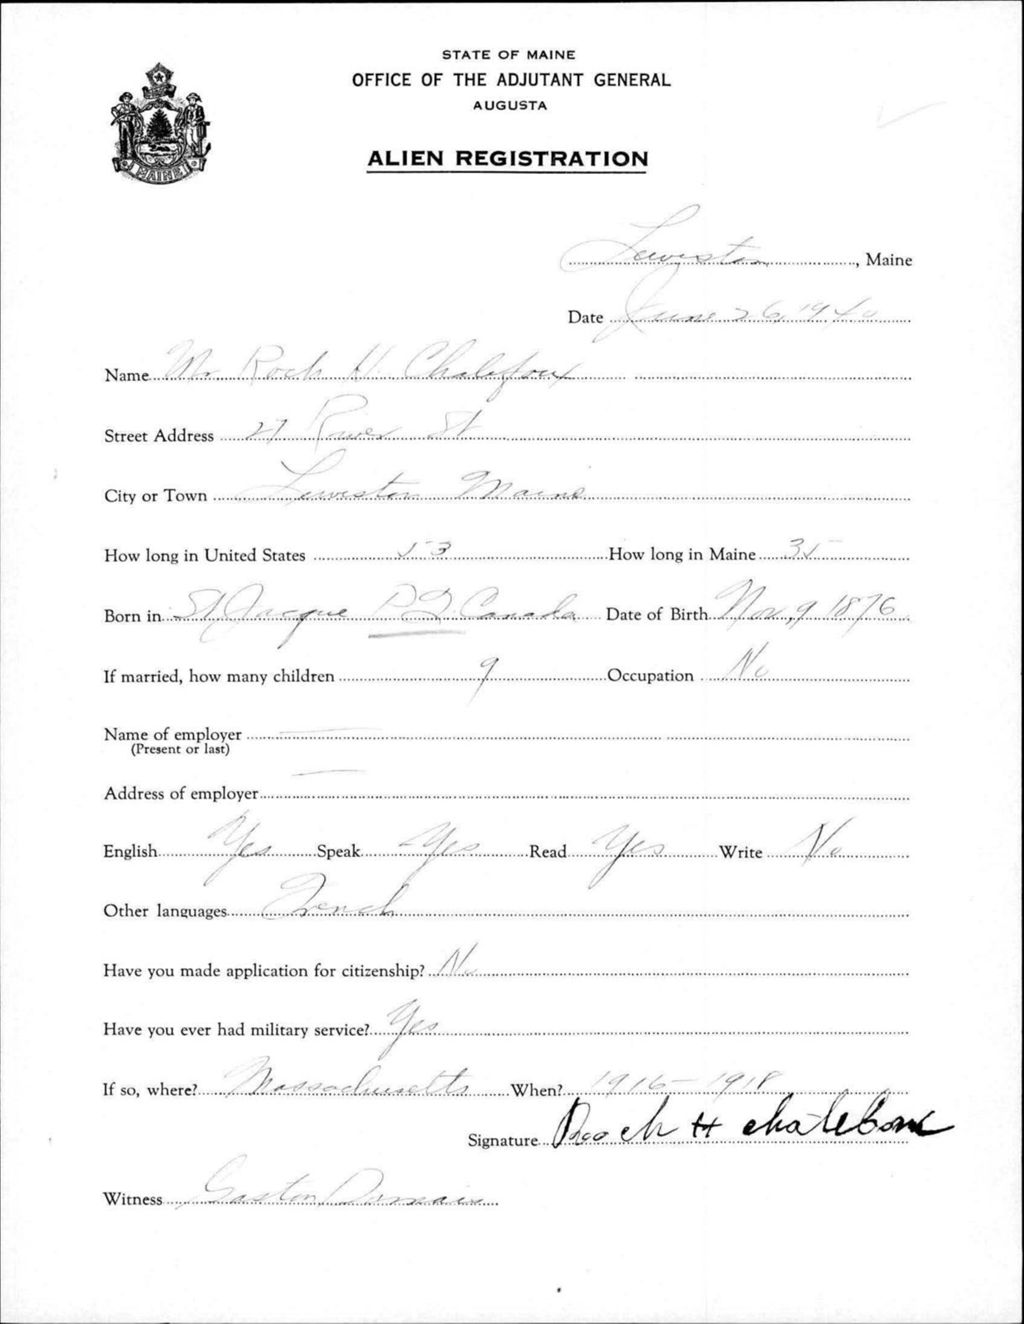 STATE OF MAINE
OFFICE OF THE ADJUTANT GENERAL
AUGUSTA
ALIEN REGISTRATION
MAINE
Lewiston, Maine
Date June 26, 1940
Name Mr Roch H. Chalifoux
Street Address 27 River St
City or Town Lewiston Maine
How long in United States 53 How long in Maine 35
Born in St Jacque P.Q. Canada Date of Birth Nov, 9 1876
If married, how many children 9 Occupation No
Name of employer —
(Present or last)
Address of employer —
English Yes Speak Yes Read Yes Write No
Other languages French
Have you made application for citizenship? No
Have you ever had military service? Yes
If so, where? Massachusetts When? 1916-1918
Signature Roch H
Witness Gaston Dumais